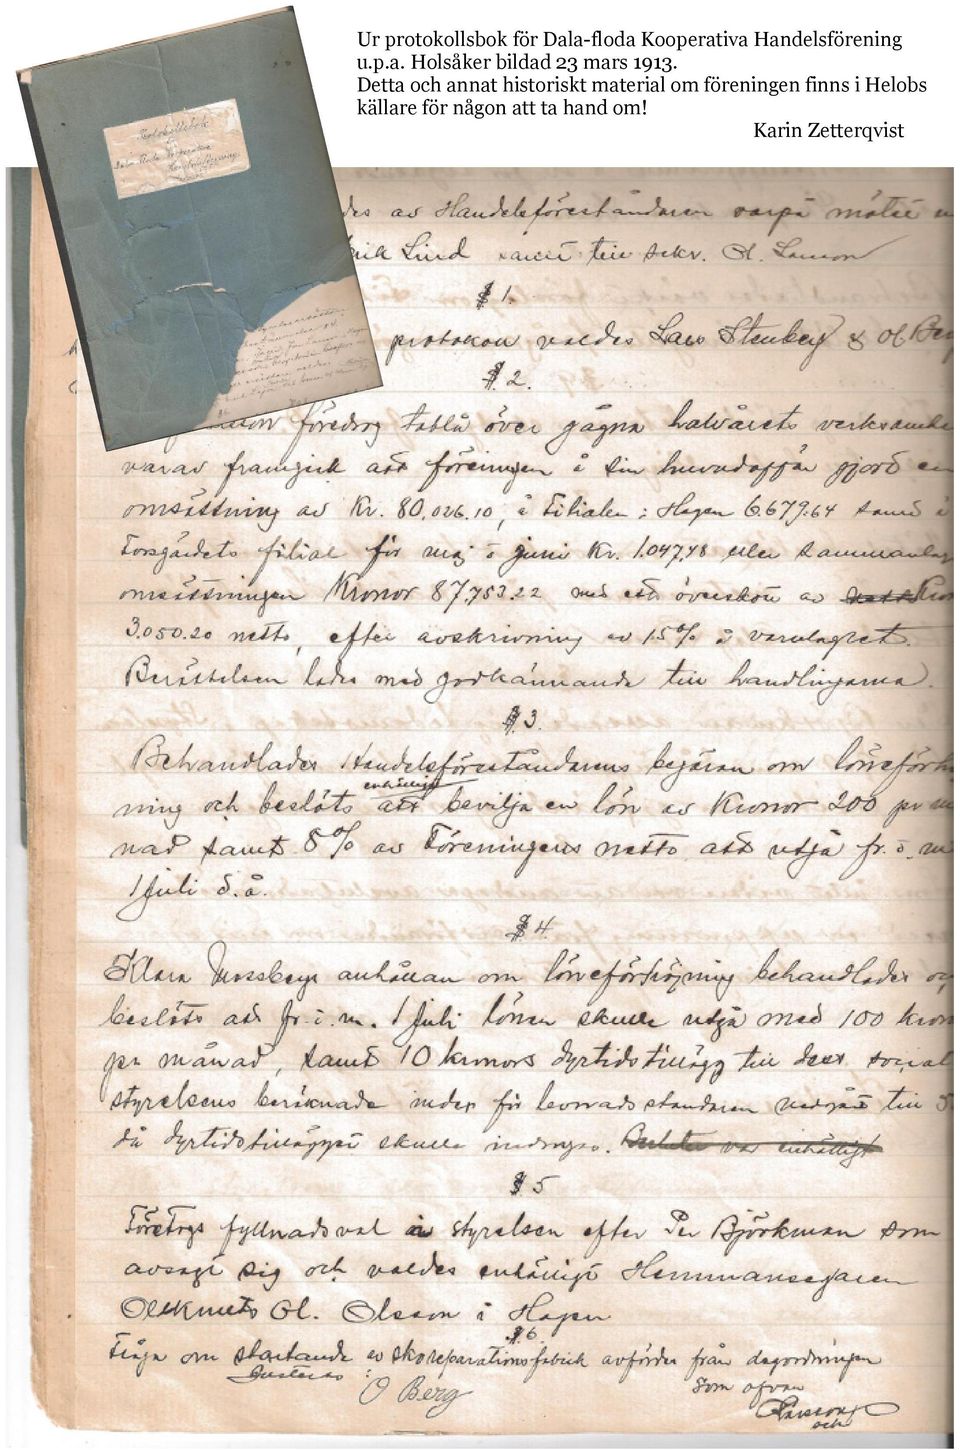 Ur protokollsbok för Dala-floda Kooperativa Handelsförening
u.p.a. Holsåker bildad 23 mars 1913.
Detta och annat historiskt material om föreningen finns i Helobs
källare för någon att ta hand om!
Karin Zetterqvist
Protokollsbok
för
Dala Floda Kooperativa
Handelsförening
des av Handelsföreståndaren varpå mötet
rik Lind samt till sekr. Ol. Larsson
§ 1.
protokoll valdes Lars Stenberg & Ol Berg
§ 2.
föredrog tablå över gågna halvårets
varav framgick att föreningen å sin huvudaffär gjord en
omsättning av Kr. 80,026.10, å Filialen i Hagen 6.679.64 samt å
Forsgärdets filial för maj o juni Kr. 1.047.48 eller sammanlag
omsättningen Kronor 87.753.22 med ett överskott av netto Kron
3.050.20 netto, efter avskrivning av 15% å varulagret.
Berättelsen lades med godkännande till handlingarna.
§ 3.
Behandlades Handelsföreståndarens begäran om löneförhö
enhälligt
ning och beslöts att bevilja en lön av Kronor 200 pr må
nad samt 8% av Föreningens netto att utgå fr. o. m
1 juli d.å.
§ 4.
Klara Mossbergs anhållan om löneförhöjning behandlades oc
beslöts att fr. o. m. 1 juli lönen skulle utgå med 100 kron
per månad, samt 10 kronors dyrtidstillägg till dess social
styrelsens beräknade index för levnadsstandaren nedgått till
då dyrtidstillägget skulle indragas. Beslutet var enhälligt
§ 5
Företogs fyllnadsval av styrelsen efter Per Björkman som
avsagt sig och valdes enhälligt Hemmansegaren
Ol. Olsson i Hagen
§ 6.
Fråga om startande av skoreparationsfabrik avfördes från dagordningen
Justeras: O Berg
Som ofvan